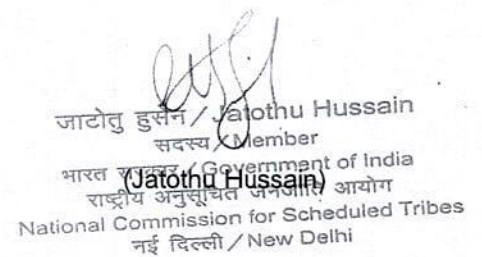 जाटोतु हुसैन / Jatothu Hussain
सदस्य / Member
भारत सरकार / Government of India
(Jatothu Hussain)
राष्ट्रीय अनुसूचित जनजाति आयोग
National Commission for Scheduled Tribes
नई दिल्ली / New Delhi